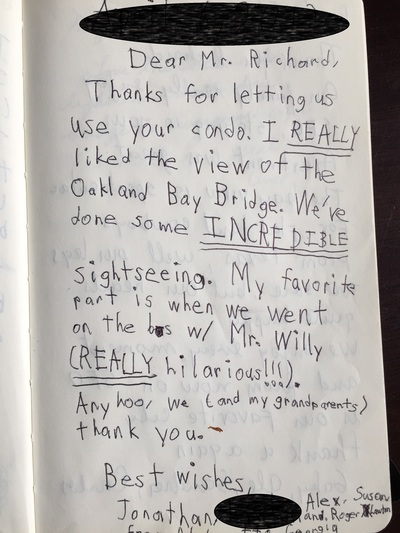 Dear Mr. Richard,
Thanks for letting us
use your condo. I REALLY
liked the view of the
Oakland Bay Bridge. We've
done some INCREDIBLE
sightseeing. My favorite
part is when we went
on the bus w/ Mr. Willy
(REALLY hilarious!!!).
Anyhoo, we (and my grandparents)
thank you.
Best wishes,
Jonathan, Alex, Susan
and, Roger